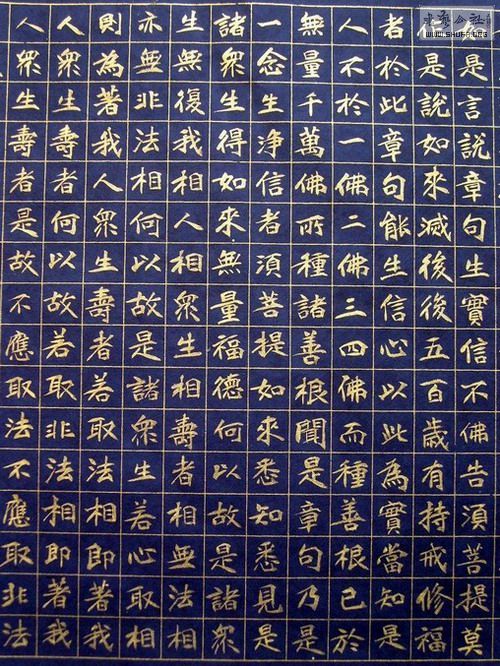 是言說章句生實信不佛告須菩提莫
是說如來滅後後五百歲有持戒修福
者於此章句能生信心以此為實當知是
人不於一佛二佛三四佛而種善根已於
無量千萬佛所種諸善根聞是章句乃是
一念生淨信者須菩提如來悉知悉見是
諸眾生得如來無量福德何以故是諸眾
生無復我相人相眾生相壽者相無法相
亦無非法相何以故是諸眾生若心取相
則為著我人眾生壽者若取法相即著我
人眾生壽者何以故若取非法相即著我
人眾生壽者是故不應取法不應取非法